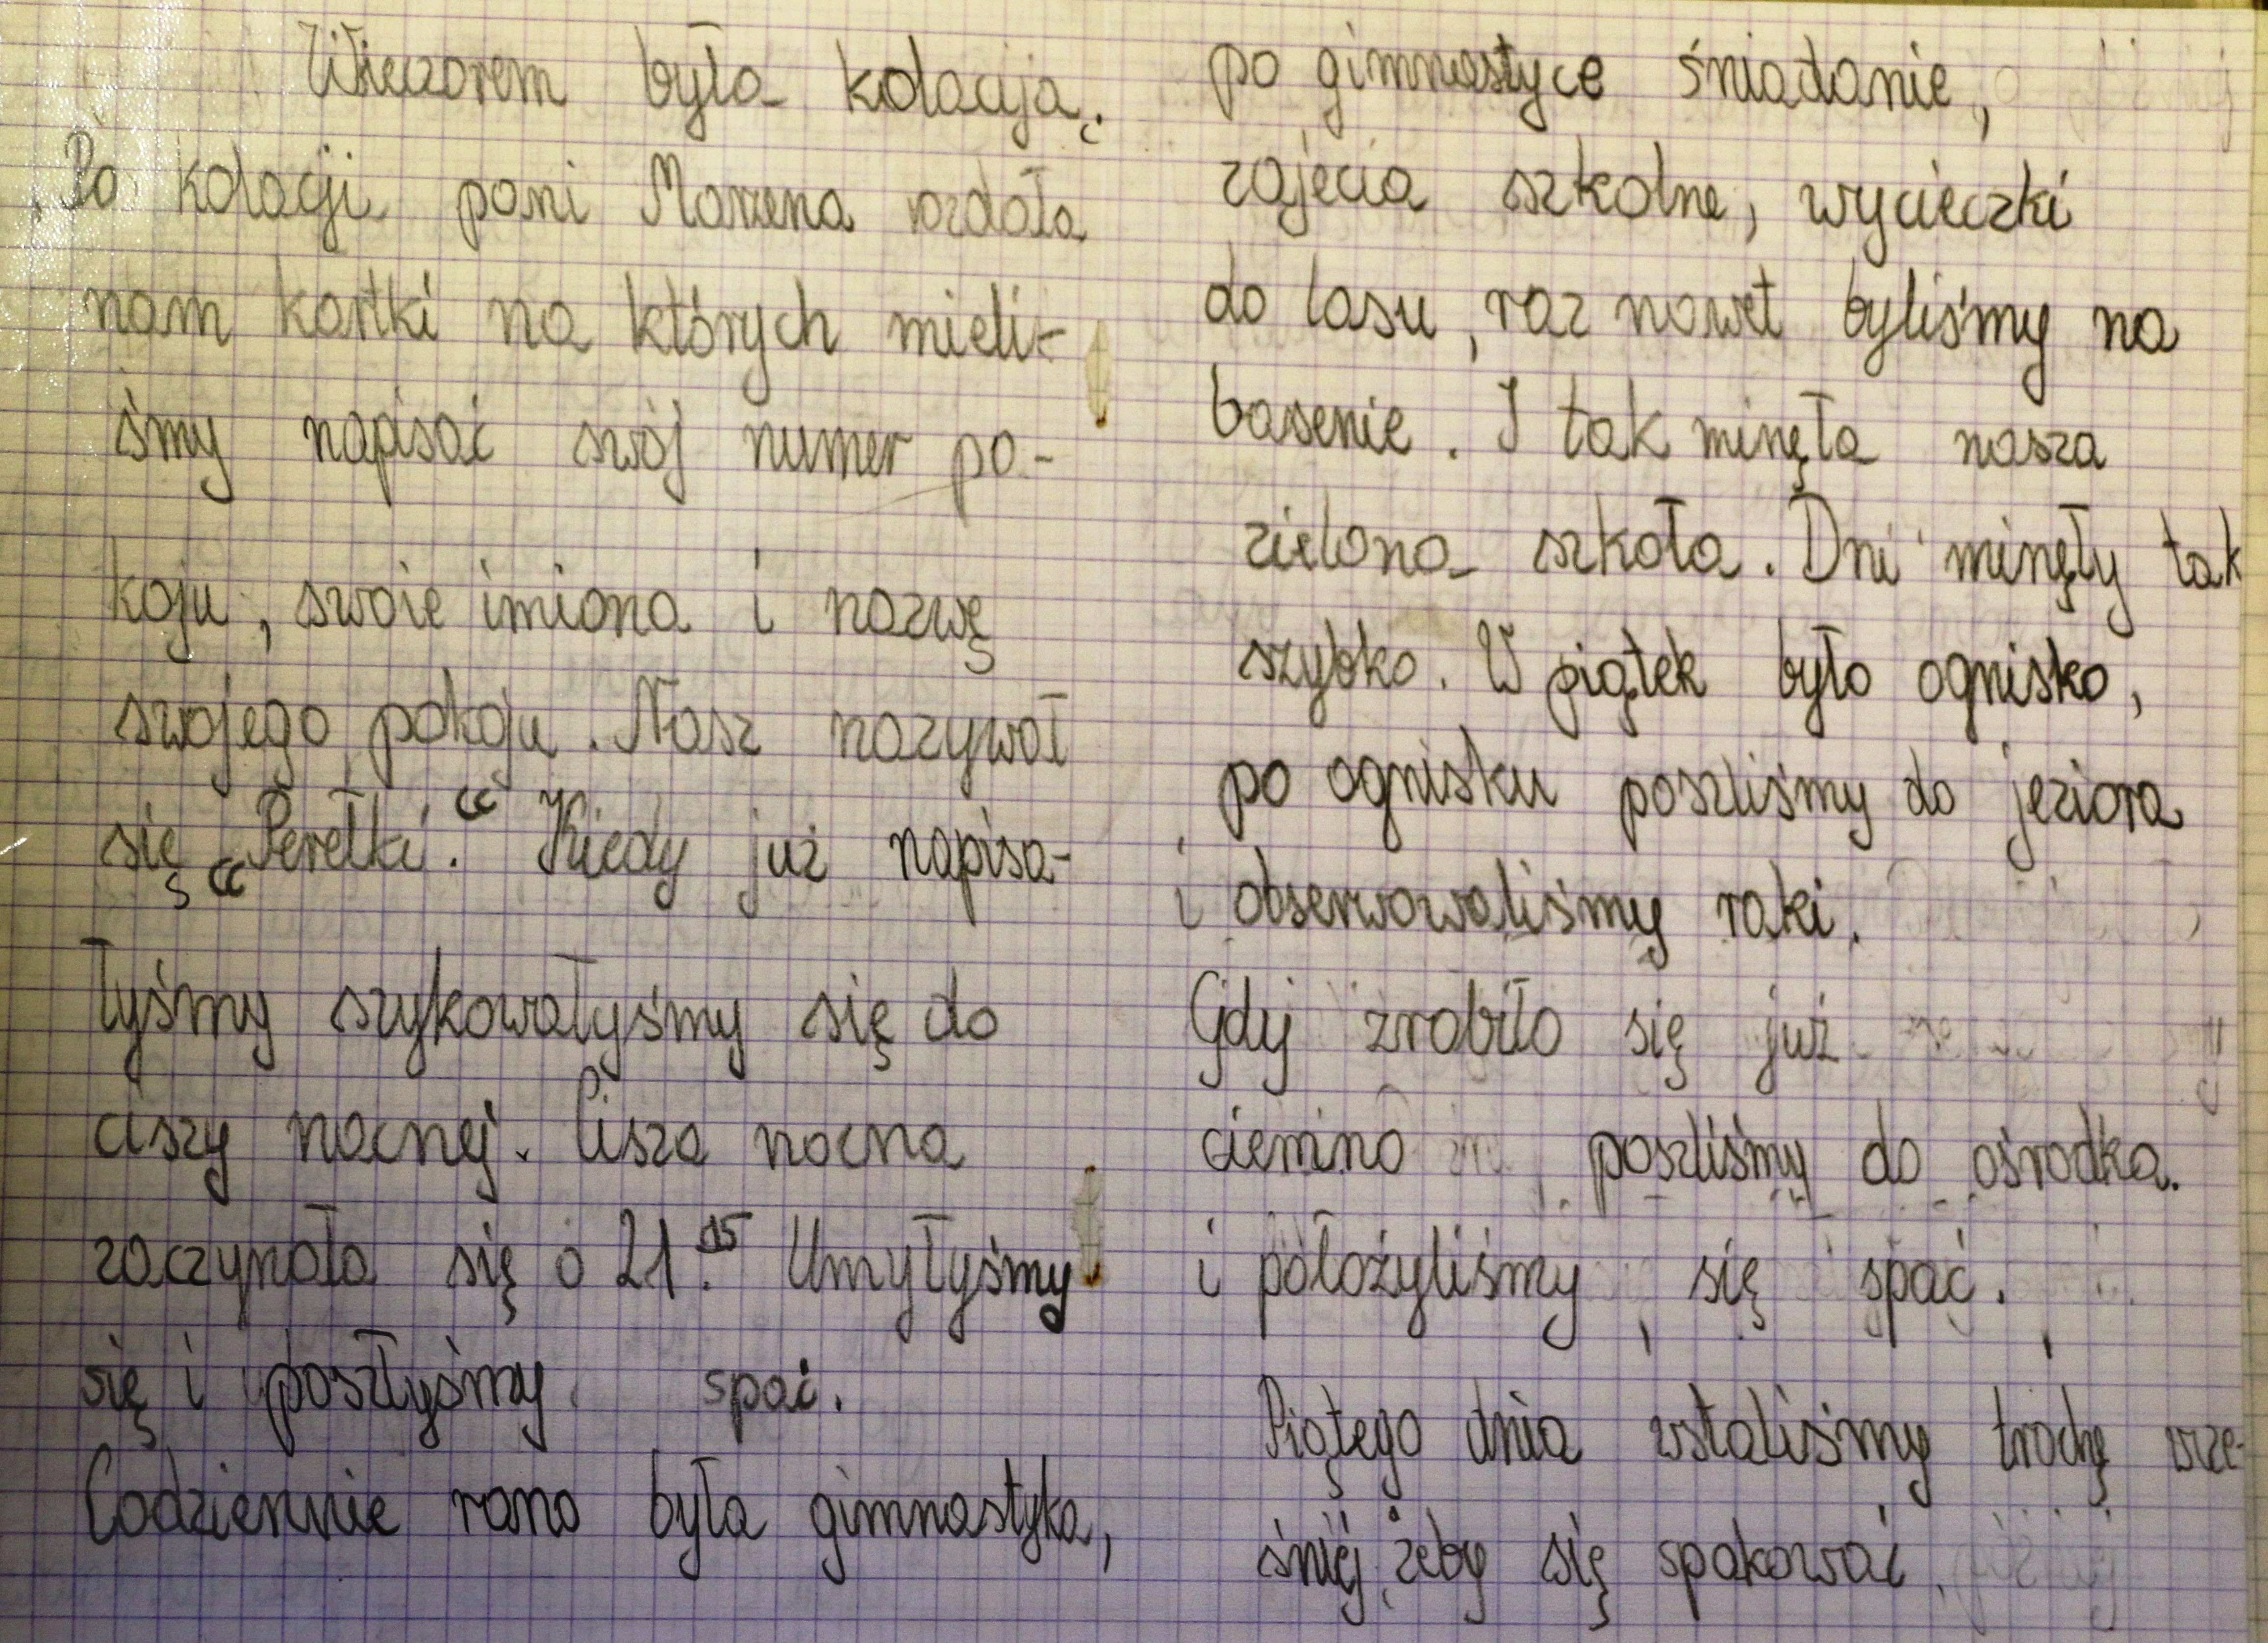 Wieczorem była kolacja.
Po kolacji pani Marzena rozdała
nam kartki na których mieli-
śmy napisać swój numer po-
koju, swoje imiona i nazwę
swojego pokoju. Nasz nazywał
się „Perełki." Kiedy już napisa-
łyśmy szykowałyśmy się do
ciszy nocnej. Cisza nocna
zaczynała się o 21.15 Umyłyśmy
się i poszłyśmy spać.
Codziennie rano była gimnastyka,
po gimnastyce śniadanie,
zajęcia szkolne, wycieczki
do lasu, raz nawet byliśmy na
basenie. I tak minęła nasza
zielona szkoła. Dni minęły tak
szybko. W piątek było ognisko,
po ognisku poszliśmy do jeziora
i obserwowaliśmy raki.
Gdy zrobiło się już
ciemno poszliśmy do ośrodka.
i położyliśmy się spać.
Piątego dnia wstaliśmy trochę wcze-
śniej, żeby się spakować